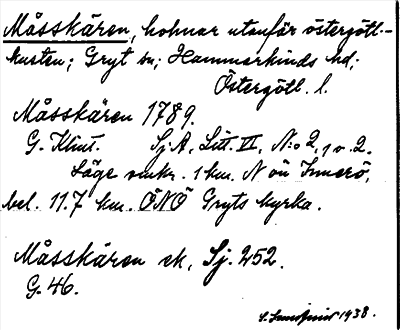 Måsskären, holmar utanför östergötl.-
kusten; Gryt sn; Hammarkinds hd;
Östergötl. l.
Måsskären 1789.
G. Klint. Sj.A, Litt. VI, N:o 2, 1 o. 2.
Läge omkr. 1 km. N ön Innerö,
bel. 11.7 km. ÖNÖ Gryts kyrka.
Måsskären ek, Sj. 252.
G. 46.
1938.